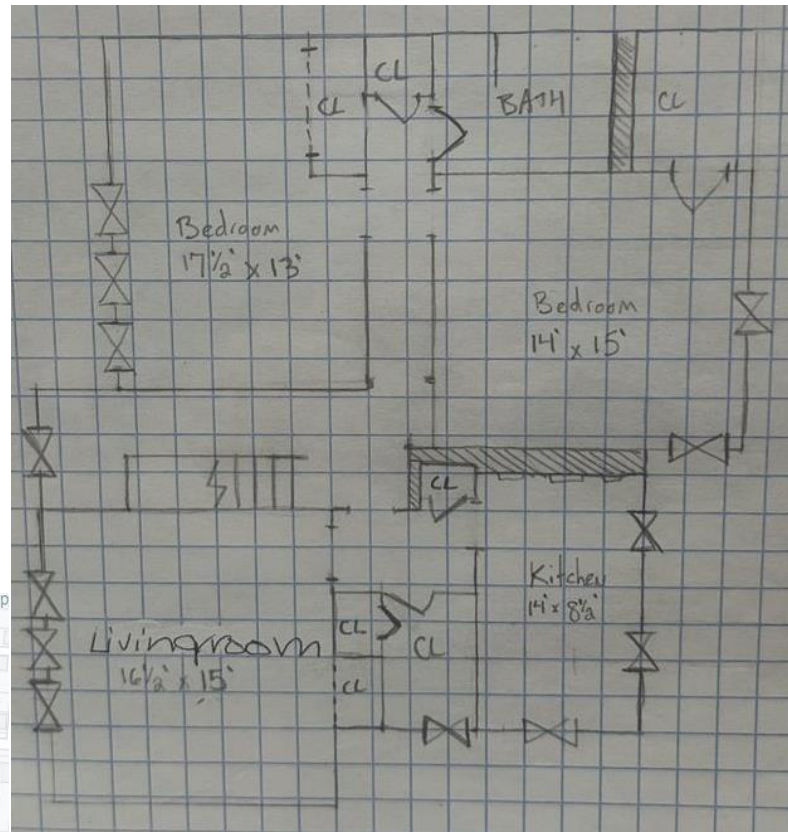 CL
CL
BATH
CL
Bedroom
17½' x 13'
Bedroom
14' x 15'
CL
Kitchen
14' x 8½'
Livingroom
16½' x 15'
CL
CL
CL
p